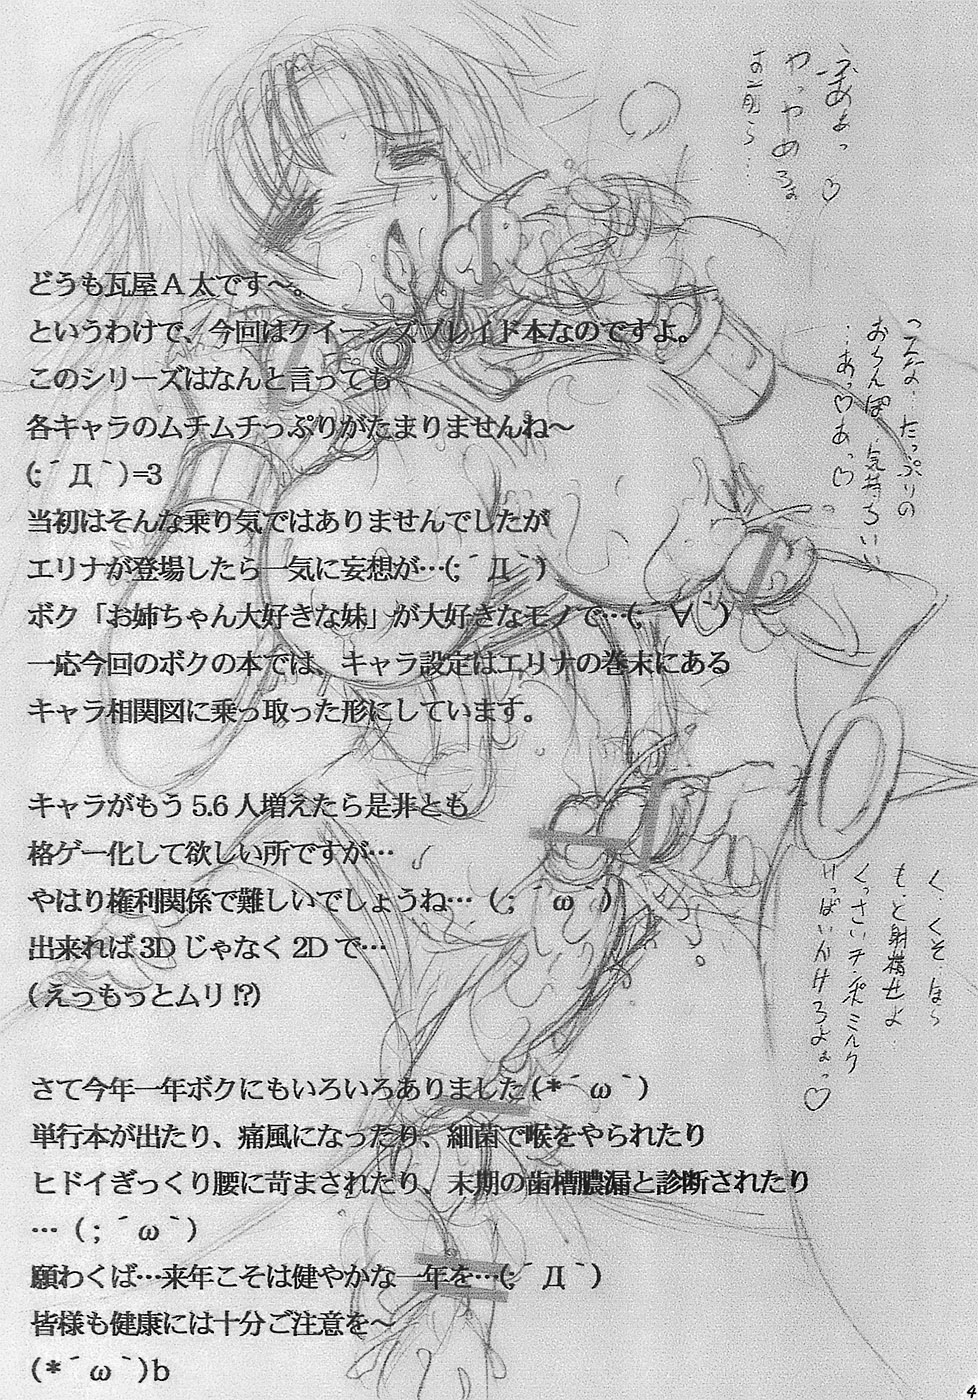 どうも瓦屋A太です〜。
というわけで、今回はクイーンズブレイド本なのですよ。
このシリーズはなんと言っても
各キャラのムチムチっぷりがたまりませんね〜
(;´Д｀)=3
当初はそんな乗り気ではありませんでしたが
エリナが登場したら一気に妄想が…(;´Д｀)
ボク「お姉ちゃん大好きな妹」が大好きなモノで…(;´∀｀)
一応今回のボクの本では、キャラ設定はエリナの巻末にある
キャラ相関図に乗っ取った形にしています。
キャラがもう5.6人増えたら是非とも
格ゲー化して欲しい所ですが…
やはり権利関係で難しいでしょうね…（;´ω｀）
出来れば3Dじゃなく2Dで…
(えっもっとムリ!?)
さて今年一年ボクにもいろいろありました(*´ω｀)
単行本が出たり、痛風になったり、細菌で喉をやられたり
ヒドイぎっくり腰に苛まされたり、末期の歯槽膿漏と診断されたり
…（;´ω｀）
願わくば…来年こそは健やかな一年を…(;´Д｀)
皆様も健康には十分ご注意を〜
(*´ω｀)b
ふあぁっ♡
やっやめろぉ
こんな、たっぷりの
おちんぽ、気持ちいい
…あっ♡あっ♡
く、くそ、ほら
もっと射精せよ
くっさいチンポミルク
いっぱいかけろよぉっ♡
4